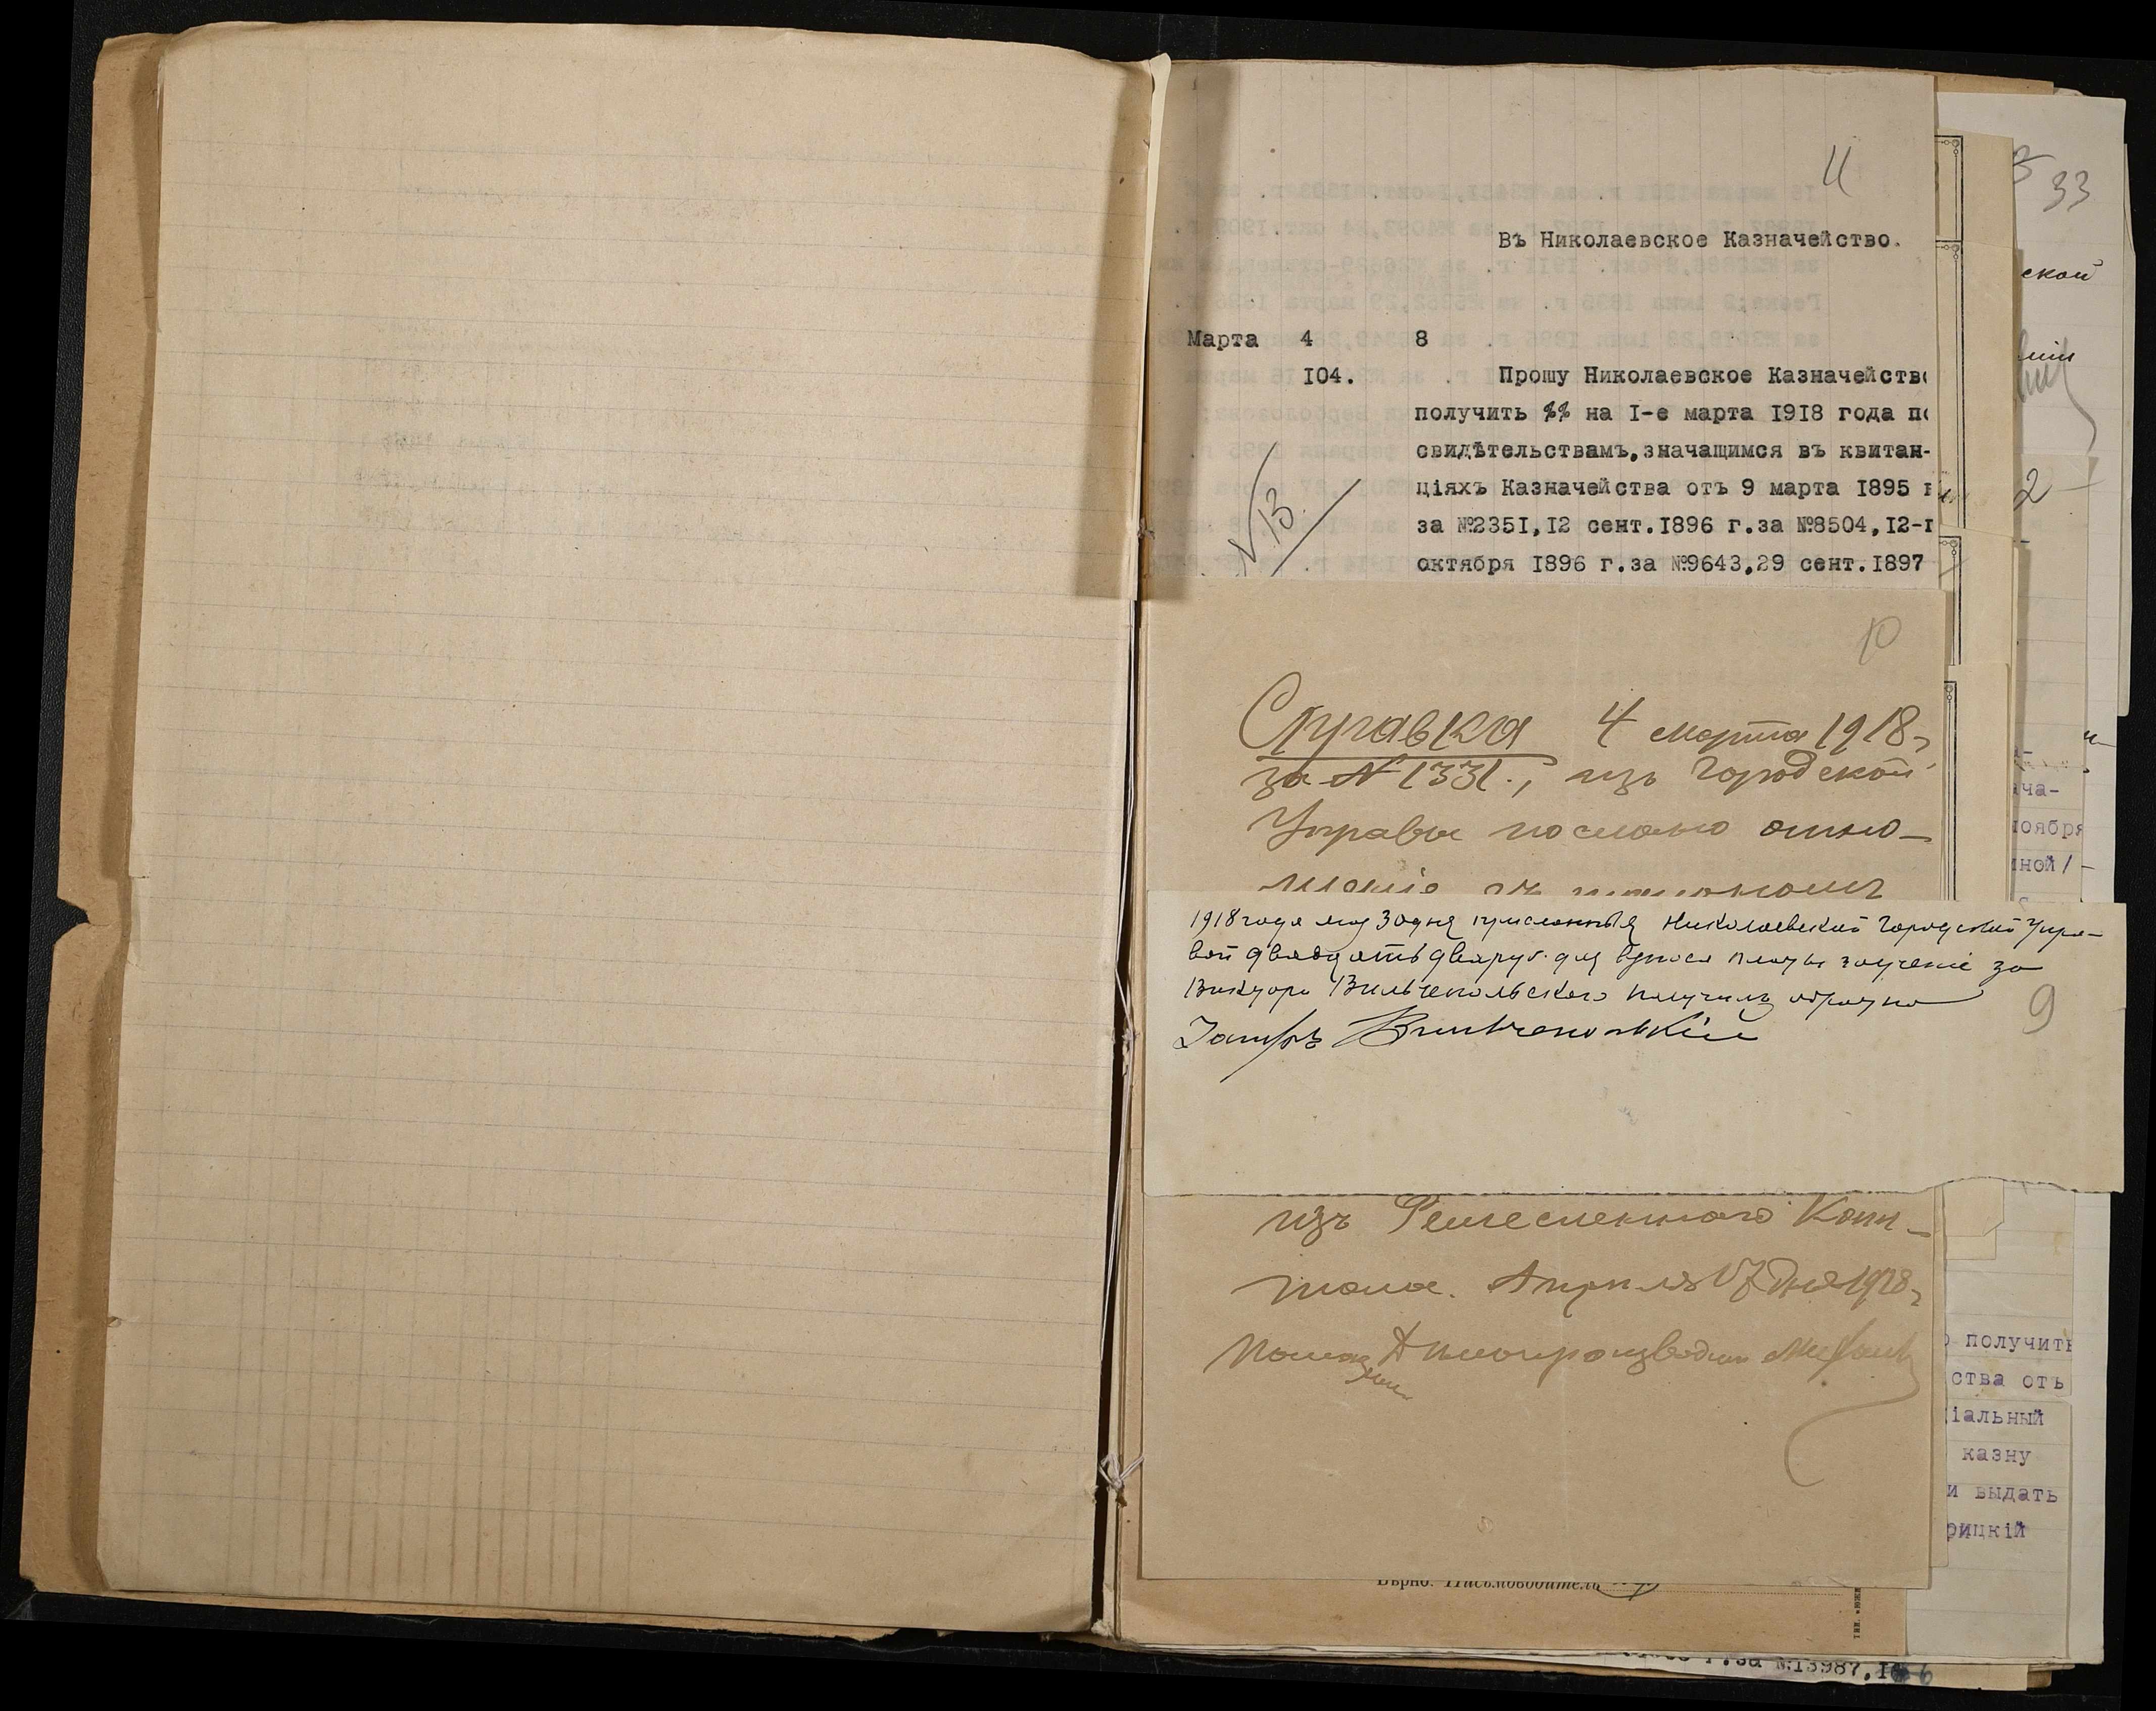 11
Въ Николаевское Казначейство.
Марта 4 8
104.
Прошу Николаевское Казначейство
получить %% на I-е марта 1918 года по
свидѣтельствамъ, значащимся въ квитан-
ціяхъ Казначейства отъ 9 марта 1895 г
за №2351, 12 сент. 1896 г. за №8504, 12-г
октября 1896 г. за №9643, 29 сент. 1897
N 13.
10
Справка 4 марта 1918 г
за № 1331., изъ Городской
Управы послано отно-
шеніе
1918 года мая 30 дня присланныя Николаевской Городской Упра-
вой двадцать два руб. для взноса платы за ученіе за
Виктора Вильчепольского получилъ обратно
9
изъ Ремесленного Капи-
тала. Апреля 17 дня 1918 г
Вѣрно: Письмоводитель
33
ской
2
ача-
ноября
ной/-
получить
ства отъ
ціальный
казну
и выдать
рицкій
г. за №13987, 1
6